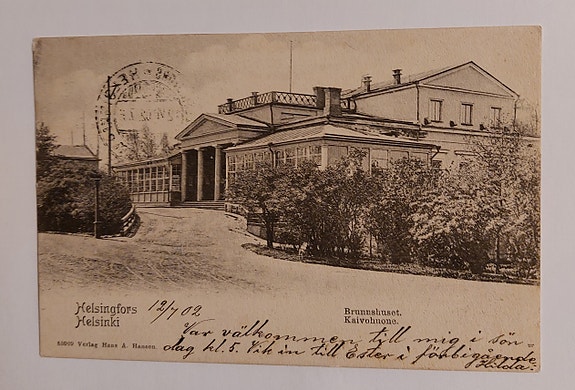 Helsingfors
Helsinki
12/7 02
Brunnshuset.
Kaivohuone.
Var välkommen till mig i sön-
dag kl. 5. Vik in till Ester i förbigående
Hilda.
Verlag Hans A. Hansen.